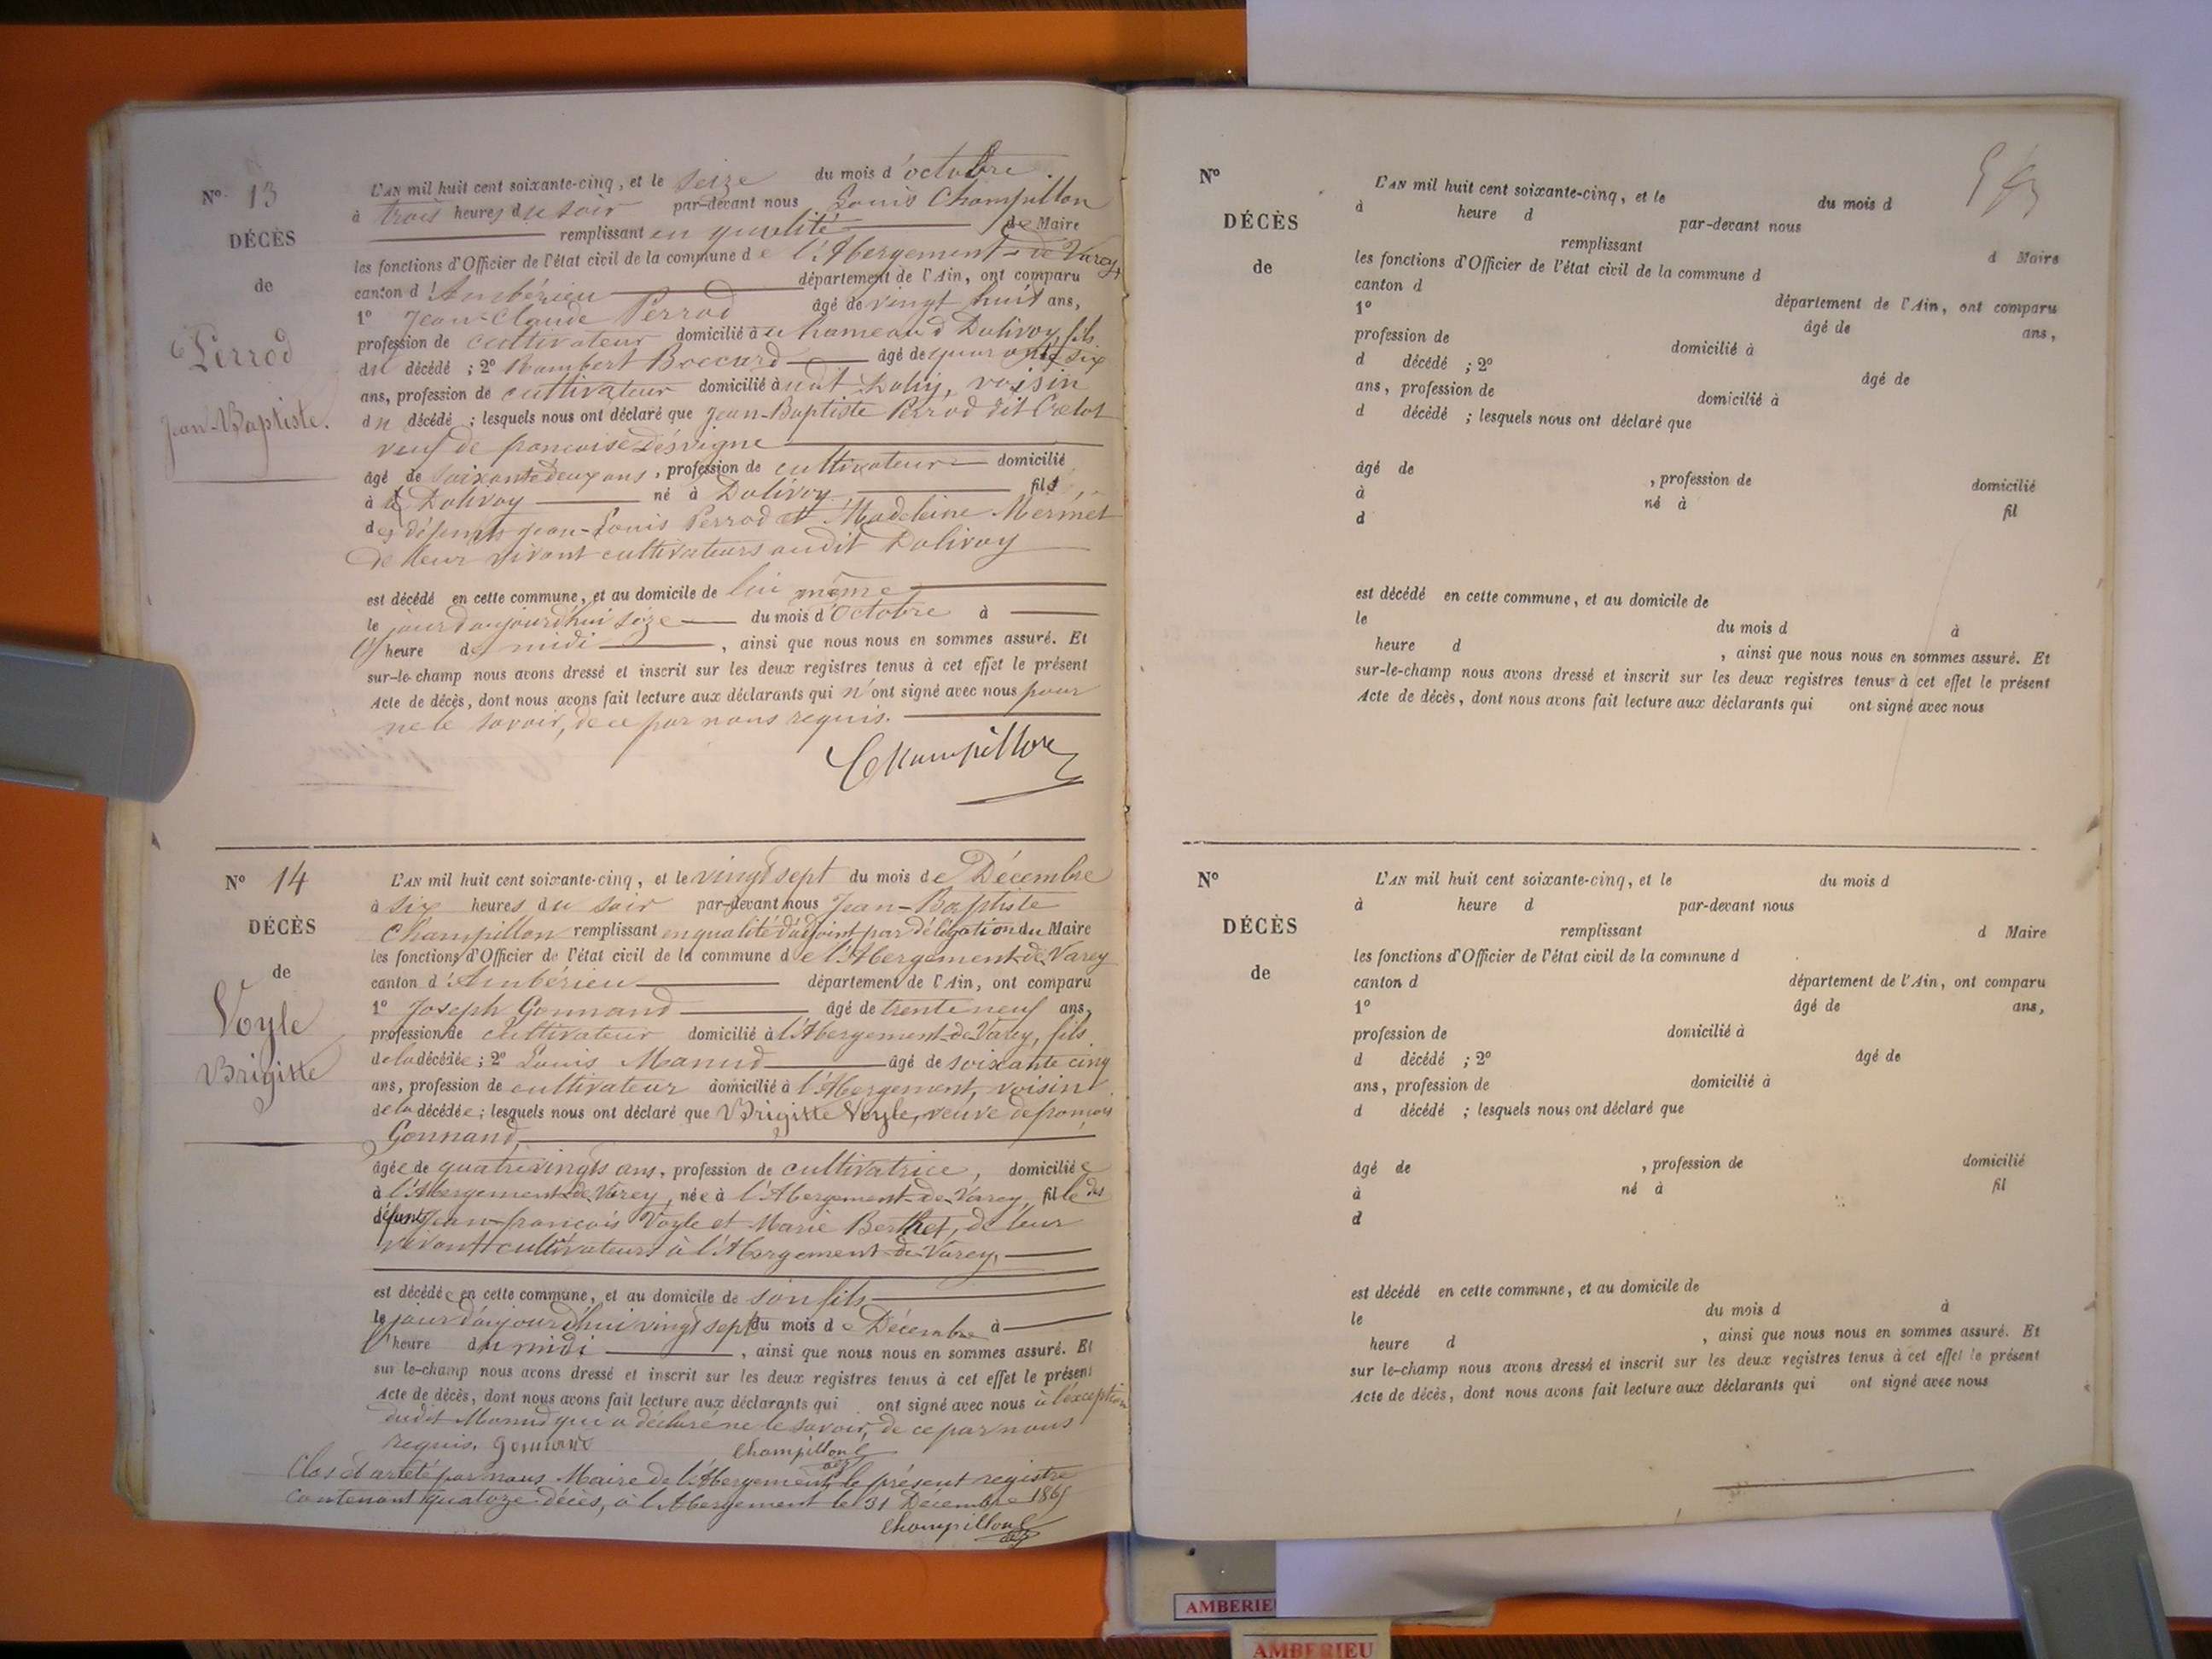 Nº 13
DÉCÈS
de
Perrod
Jean-Baptiste.
L'AN mil huit cent soixante-cinq, et le seize du mois d'octobre
à trois heures du soir par-devant nous Louis Champillon
remplissant en qualité de Maire
les fonctions d'Officier de l'état civil de la commune de l'Abergement-de-Varey
canton d'Ambérieu département de l'Ain, ont comparu
1º Jean-Claude Perrod âgé de vingt huit ans,
profession de cultivateur domicilié au hameau d Dalivoy, fils
du décédé ; 2º Rambert Boccard âgé de quarante six
ans, profession de cultivateur domicilié audit voisin
du décédé ; lesquels nous ont déclaré que Jean-Baptiste Perrod dit
veuf de francoise Désvigne
âgé de soixante deux ans, profession de cultivateur domicilié
à Dalivoy né à Dalivoy fils
des défunts Jean-Louis Perrod et Madeleine Mermet
de leur vivant cultivateurs audit Dalivoy
est décédé en cette commune, et au domicile de lui même
le jour d'aujourd'hui seize du mois d'Octobre à
heure de midi, ainsi que nous nous en sommes assuré. Et
sur-le-champ nous avons dressé et inscrit sur les deux registres tenus à cet effet le présent
Acte de décès, dont nous avons fait lecture aux déclarants qui n'ont signé avec nous pour
ne le savoir, de ce par nous requis.
Champillon
Nº 14
DÉCÈS
de
Voyle
Brigitte
L'AN mil huit cent soixante-cinq, et le vingt sept du mois de Décembre
à six heures du soir par-devant nous Jean-Baptiste
Champillon remplissant en qualité d'adjoint par délégation du Maire
les fonctions d'Officier de l'état civil de la commune de l'Abergement-de-Varey
canton d'Ambérieu département de l'Ain, ont comparu
1º Joseph Gonnand âgé de trente neuf ans,
profession de cultivateur domicilié à l'Abergement-de-Varey, fils
de la décédée ; 2º Louis âgé de soixante cinq
ans, profession de cultivateur domicilié à l'Abergement, voisin
de la décédée ; lesquels nous ont déclaré que Brigitte Voyle, veuve de francois
Gonnand,
âgée de quatre vingts ans, profession de cultivatrice, domiciliée
à l'Abergement-de-Varey, née à l'Abergement-de-Varey, fille des
défunts Jean-francois Voyle et Marie Berthet, de leur
vivant cultivateurs à l'Abergement-de-Varey,
est décédée en cette commune, et au domicile de son fils
le jour d'aujourd'hui vingt sept du mois de Décembre à
l'heure du midi, ainsi que nous nous en sommes assuré. Et
sur le-champ nous avons dressé et inscrit sur les deux registres tenus à cet effet le présent
Acte de décès, dont nous avons fait lecture aux déclarants qui ont signé avec nous à l'exception
dudit qui a déclaré ne le savoir, de ce par nous
requis. Gonnand Champillon
adj
Clos et arrêté par nous Maire de l'Abergement, le présent registre
contenant quatoze décès, à l'Abergement le 31 Décembre 1865
Champillon
adj
Nº
DÉCÈS
de
L'AN mil huit cent soixante-cinq, et le du mois d
à heure d par-devant nous
remplissant d Maire
les fonctions d'Officier de l'état civil de la commune d
canton d département de l'Ain, ont comparu
1º âgé de ans,
profession de domicilié à
d décédé ; 2º âgé de
ans, profession de domicilié à
d décédé ; lesquels nous ont déclaré que
âgé de , profession de domicilié
à né à fil
d
est décédé en cette commune, et au domicile de
le du mois d à
heure d , ainsi que nous nous en sommes assuré. Et
sur-le-champ nous avons dressé et inscrit sur les deux registres tenus à cet effet le présent
Acte de décès, dont nous avons fait lecture aux déclarants qui ont signé avec nous
Nº
DÉCÈS
de
L'AN mil huit cent soixante-cinq, et le du mois d
à heure d par-devant nous
remplissant d Maire
les fonctions d'Officier de l'état civil de la commune d
canton d département de l'Ain, ont comparu
1º âgé de ans,
profession de domicilié à
d décédé ; 2º âgé de
ans, profession de domicilié à
d décédé ; lesquels nous ont déclaré que
âgé de , profession de domicilié
à né à fil
d
est décédé en cette commune, et au domicile de
le du mois d à
heure d , ainsi que nous nous en sommes assuré. Et
sur le-champ nous avons dressé et inscrit sur les deux registres tenus à cet effet le présent
Acte de décès, dont nous avons fait lecture aux déclarants qui ont signé avec nous
AMBERIE
AMBERIEU